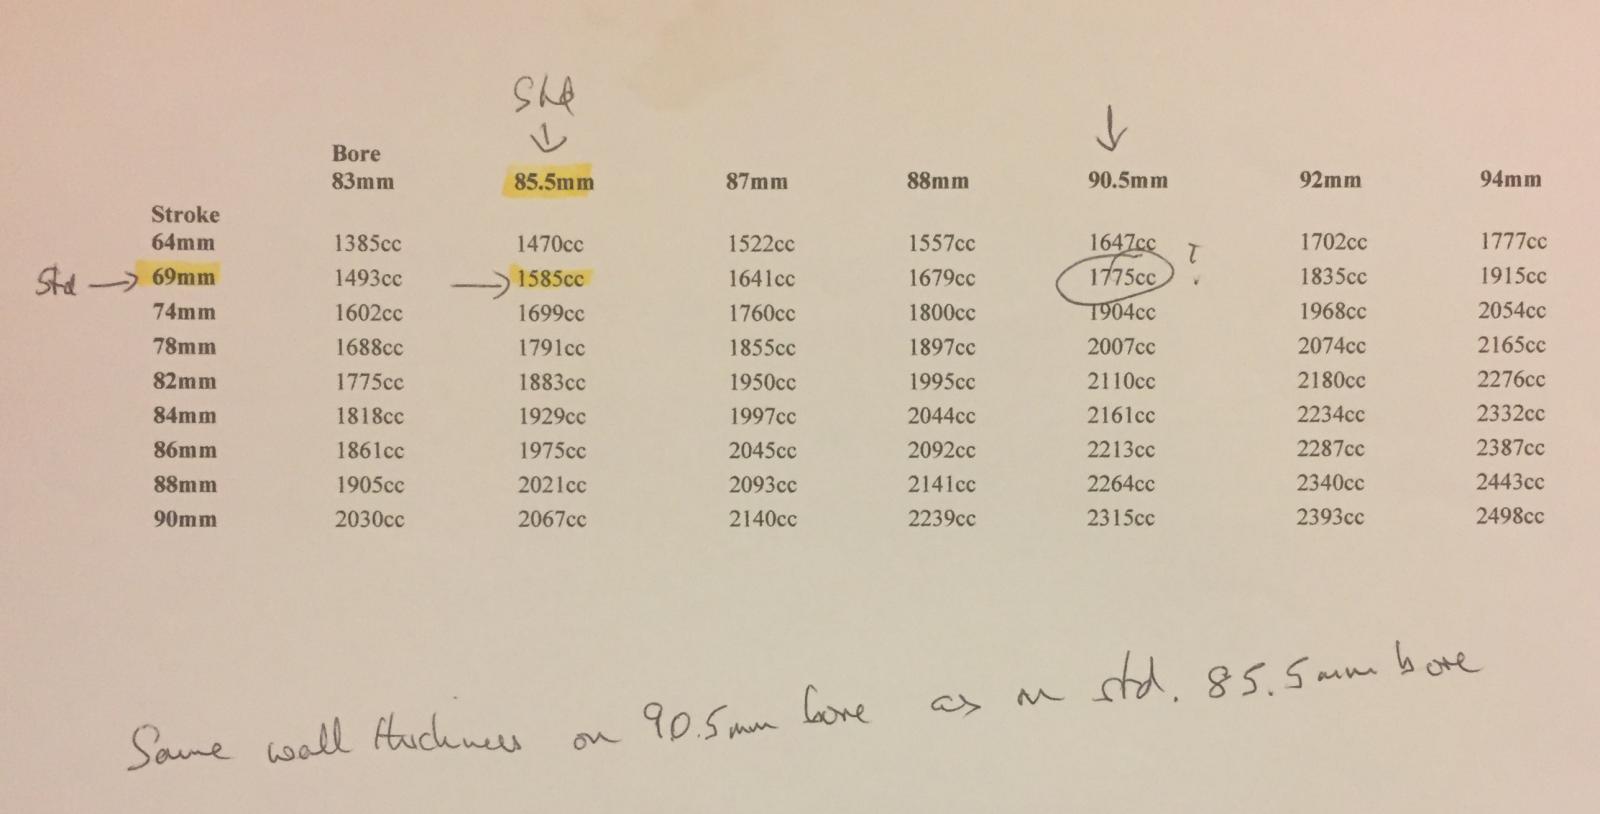 Std
Bore
83mm 85.5mm 87mm 88mm 90.5mm 92mm 94mm
Stroke
64mm 1385cc 1470cc 1522cc 1557cc 1647cc 1702cc 1777cc
Std 69mm 1493cc 1585cc 1641cc 1679cc 1775cc 1835cc 1915cc
74mm 1602cc 1699cc 1760cc 1800cc 1904cc 1968cc 2054cc
78mm 1688cc 1791cc 1855cc 1897cc 2007cc 2074cc 2165cc
82mm 1775cc 1883cc 1950cc 1995cc 2110cc 2180cc 2276cc
84mm 1818cc 1929cc 1997cc 2044cc 2161cc 2234cc 2332cc
86mm 1861cc 1975cc 2045cc 2092cc 2213cc 2287cc 2387cc
88mm 1905cc 2021cc 2093cc 2141cc 2264cc 2340cc 2443cc
90mm 2030cc 2067cc 2140cc 2239cc 2315cc 2393cc 2498cc
Same wall thickness on 90.5mm bore as on std. 85.5mm bore